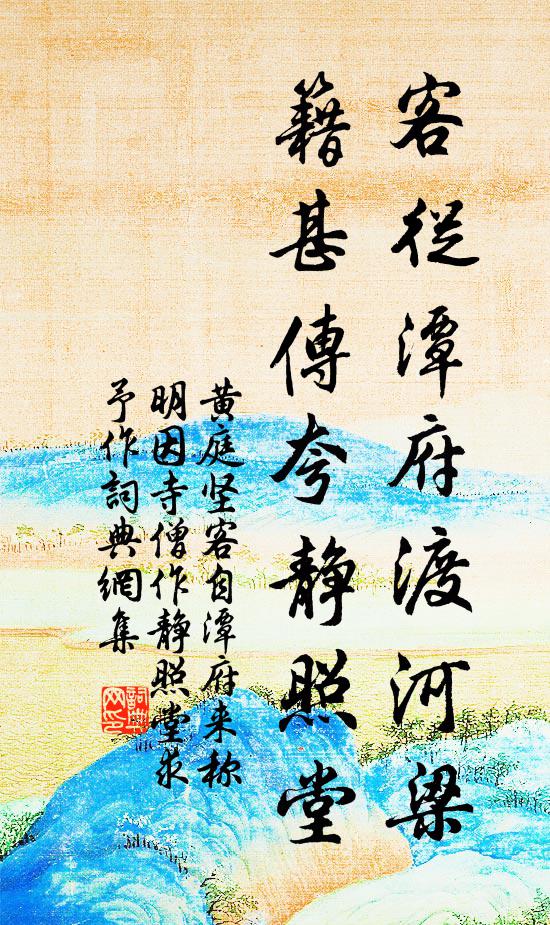 客從潭府渡河梁
籍甚傳夸靜照堂
黄庭坚客自潭府来称
明因寺僧作静照堂求
予作詞典網集
詞典網印